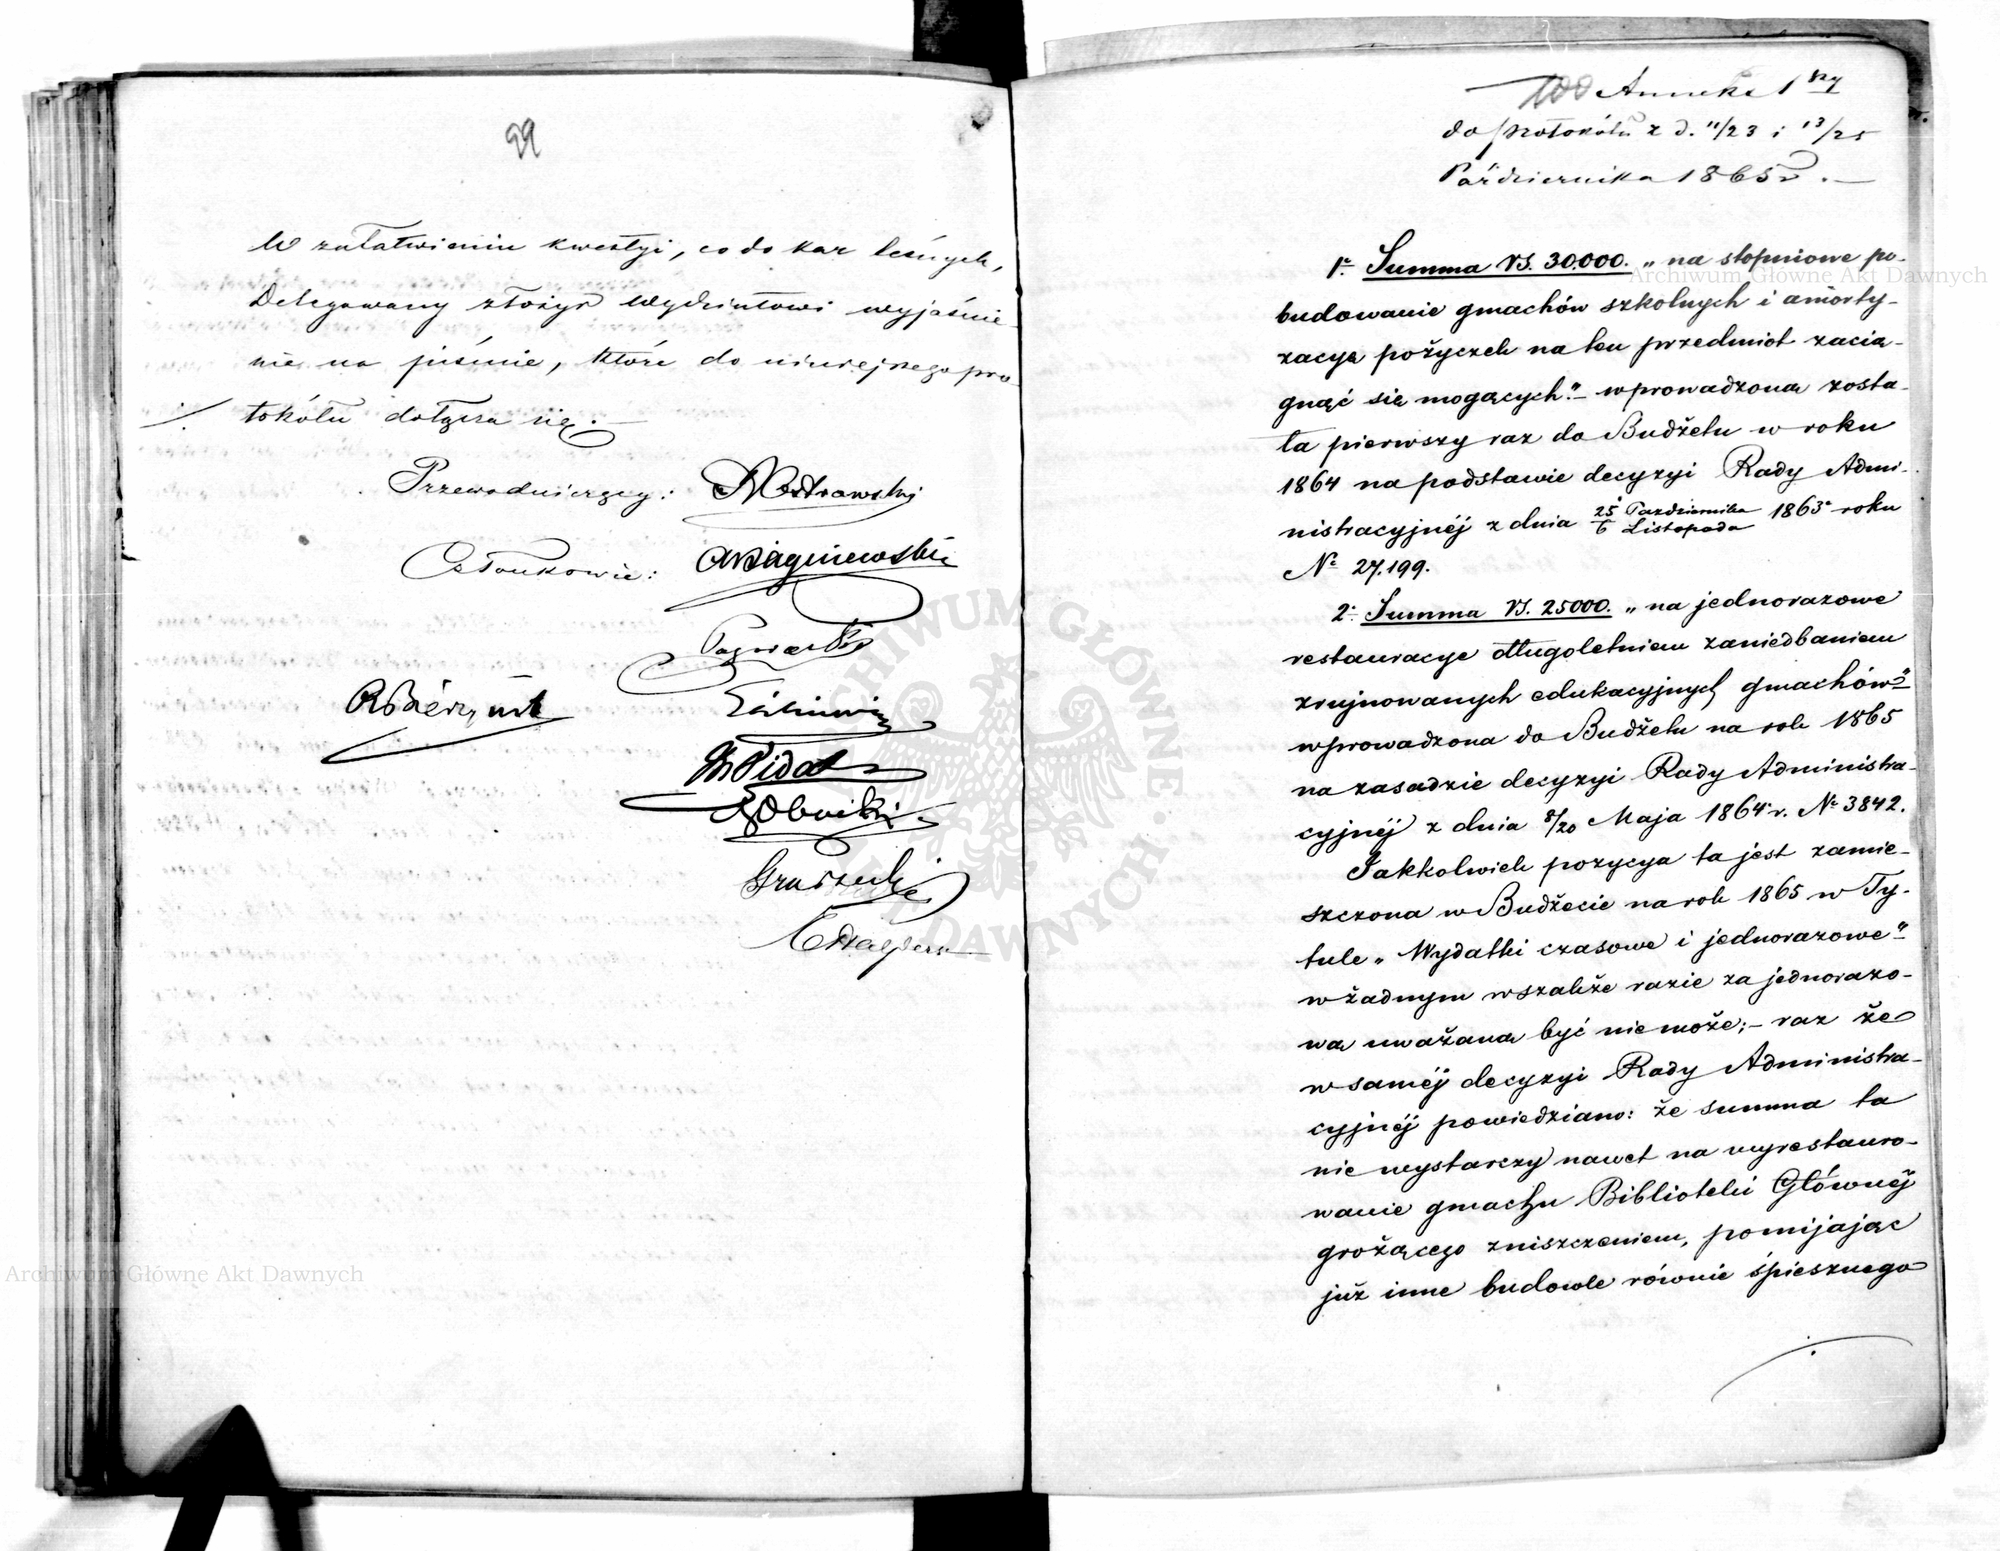 99
W załatwieniu kwestyi, co do kar leśnych,
Delegowany złożył Wydziałowi wyjaśnie-
nie na piśmie, które do niniejszego pro-
tokółu dołącza się. —
Przewodniczący:
Członkowie:
100 Anneks 1szy
do protokółu z d. 11/23 i 13/25
Października 1865 r. —
1e. Summa rs. 30.000. „na stopniowe po-
budowanie gmachów szkolnych i amorty-
zacyą pożyczek na ten przedmiot zacią-
gnąć się mogących." — wprowadzona zosta-
ła pierwszy raz do Budżetu w roku
1864 na podstawie decyzyi Rady Admi-
nistracyjnéj z dnia 25 Października / 6 Listopada 1863 roku
No 27.199.
2e. Summa rs. 25000. „na jednorazowe
restauracye długoletniem zaniedbaniem
zrujnowanych edukacyjnych gmachów" —
wprowadzona do Budżetu na rok 1865
na zasadzie decyzyi Rady Administra-
cyjnéj z dnia 8/20 Maja 1864 r. No 3842.
Jakkolwiek pozycya ta jest zamie-
szczona w Budżecie na rok 1865 w Ty-
tule „Wydatki czasowe i jednorazowe"
w żadnym wszakże razie za jednorazo-
wą uważana być nie może; — raz że
w saméj decyzyi Rady Administra-
cyjnéj powiedziano: że summa ta
nie wystarczy nawet na wyrestauro-
wanie gmachu Biblioteki Głównéj
grożącego zniszczeniem, pomijając
już inne budowle równie śpiesznego
Archiwum Główne Akt Dawnych
Archiwum Główne Akt Dawnych
ARCHIWUM GŁÓWNE AKT DAWNYCH